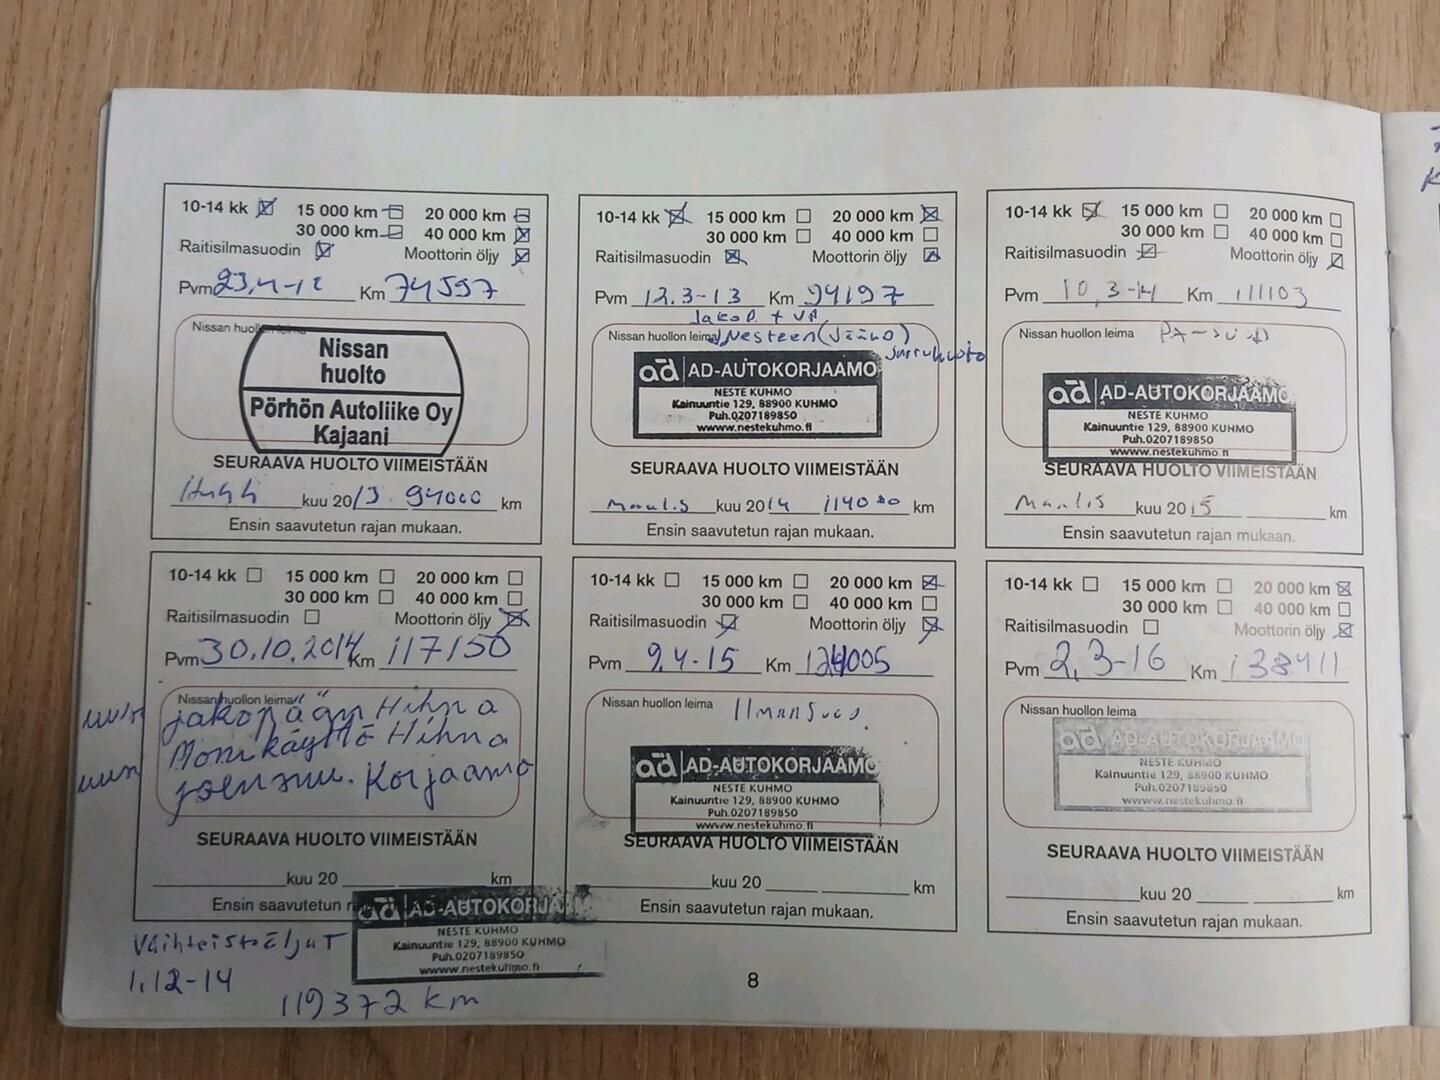 10-14 kk 15 000 km 20 000 km
30 000 km 40 000 km
Raitisilmasuodin Moottorin öljy
Pvm 23.4-12 Km 74597
Nissan huollon leima
Nissan
huolto
Pörhön Autoliike Oy
Kajaani
SEURAAVA HUOLTO VIIMEISTÄÄN
Huhti kuu 2013 94000 km
Ensin saavutetun rajan mukaan.
10-14 kk 15 000 km 20 000 km
30 000 km 40 000 km
Raitisilmasuodin Moottorin öljy
Pvm 12.3-13 Km 94197
Nissan huollon leima Nesteen (Jääno)
Jarruhuolto
ad AD-AUTOKORJAAMO
NESTE KUHMO
Kainuuntie 129, 88900 KUHMO
Puh.0207189850
www.nestekuhmo.fi
SEURAAVA HUOLTO VIIMEISTÄÄN
Maalis kuu 2014 114000 km
Ensin saavutetun rajan mukaan.
10-14 kk 15 000 km 20 000 km
30 000 km 40 000 km
Raitisilmasuodin Moottorin öljy
Pvm 10.3-14 Km 111103
Nissan huollon leima
ad AD-AUTOKORJAAMO
NESTE KUHMO
Kainuuntie 129, 88900 KUHMO
Puh.0207189850
www.nestekuhmo.fi
SEURAAVA HUOLTO VIIMEISTÄÄN
Maalis kuu 2015 km
Ensin saavutetun rajan mukaan.
10-14 kk 15 000 km 20 000 km
30 000 km 40 000 km
Raitisilmasuodin Moottorin öljy
Pvm 30.10.2014 Km 117150
Nissan huollon leima
jakopään Hihna
Monikäyttö Hihna
Korjaamo
SEURAAVA HUOLTO VIIMEISTÄÄN
kuu 20 km
Ensin saavutetun
ad AD-AUTOKORJAAMO
NESTE KUHMO
Kainuuntie 129, 88900 KUHMO
Puh.0207189850
www.nestekuhmo.fi
Vaihteistoöljyt
1.12-14
119372 km
10-14 kk 15 000 km 20 000 km
30 000 km 40 000 km
Raitisilmasuodin Moottorin öljy
Pvm 9.4-15 Km 124005
Nissan huollon leima Ilmansuod.
ad AD-AUTOKORJAAMO
NESTE KUHMO
Kainuuntie 129, 88900 KUHMO
Puh.0207189850
www.nestekuhmo.fi
SEURAAVA HUOLTO VIIMEISTÄÄN
kuu 20 km
Ensin saavutetun rajan mukaan.
10-14 kk 15 000 km 20 000 km
30 000 km 40 000 km
Raitisilmasuodin Moottorin öljy
Pvm 2.3-16 Km 138411
Nissan huollon leima
ad AD-AUTOKORJAAMO
NESTE KUHMO
Kainuuntie 129, 88900 KUHMO
Puh.0207189850
www.nestekuhmo.fi
SEURAAVA HUOLTO VIIMEISTÄÄN
kuu 20 km
Ensin saavutetun rajan mukaan.
8